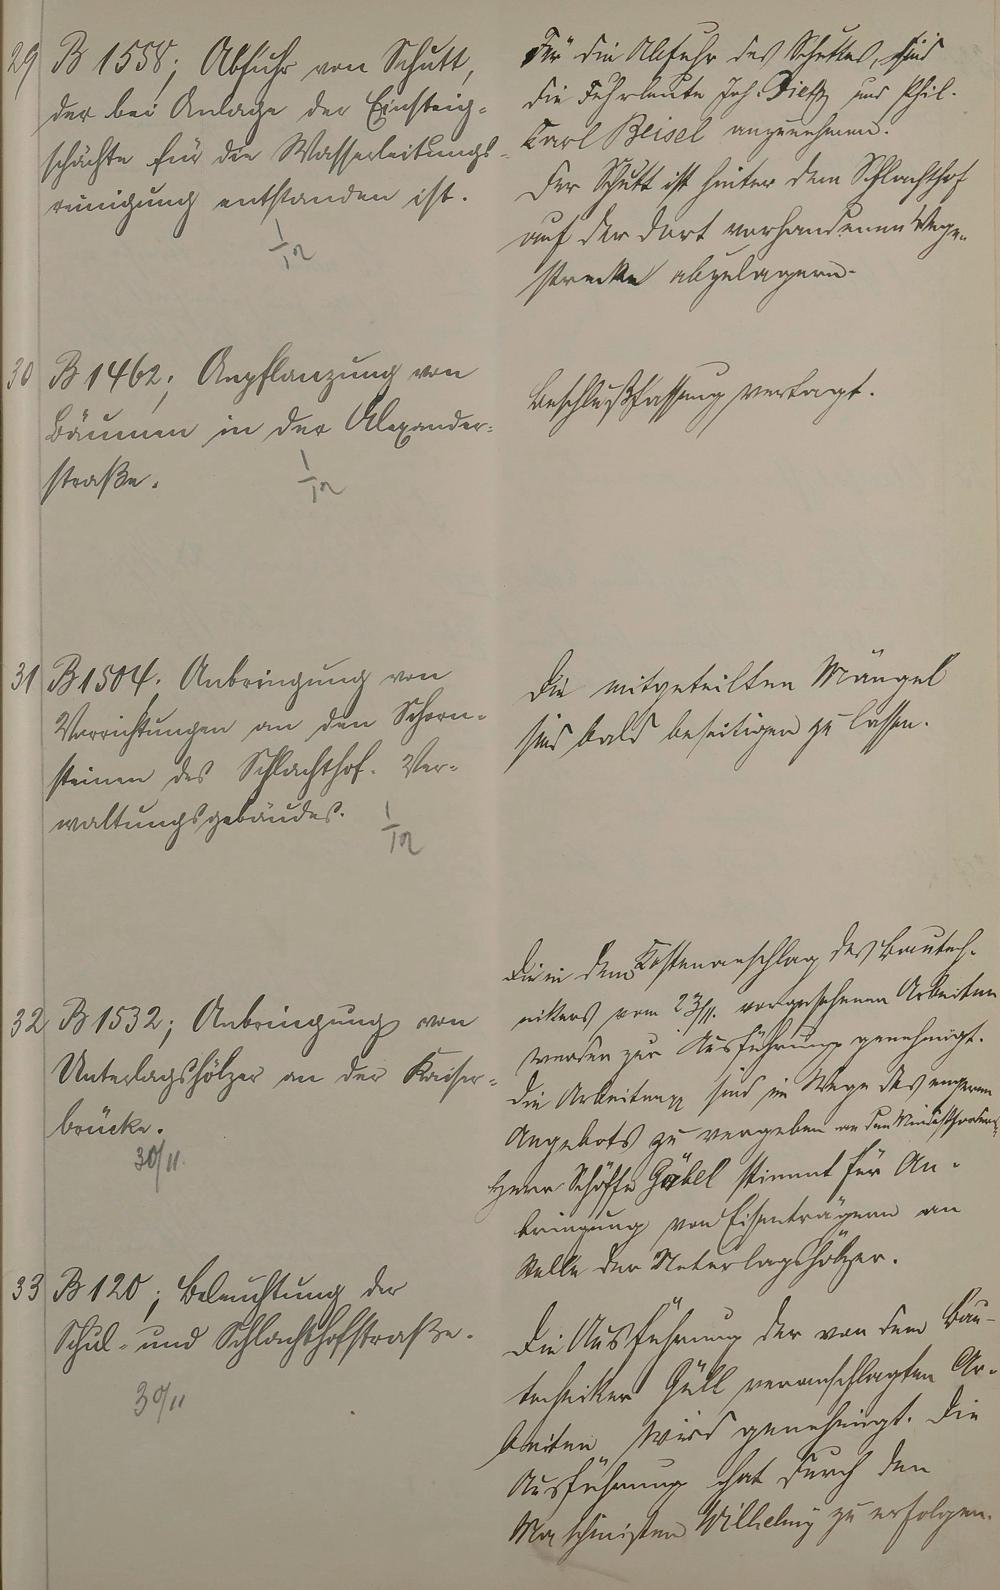 29 B 1558; Abfuhr von Schutt,
der bei Anlage der Einsteig-
schächte für die Wasserleitungs-
reinigung entstanden ist.
1/12
Für die Abfuhr des Schuttes, sind
die Fuhrleute Joh. Dietz und Phil.
Karl Beisel anzunehmen.
Der Schutt ist hinter dem Schlachthof
auf der dort vorhandenen Wege-
strecke abzulagern.
30 B 1462; Anpflanzung von
Bäumen in der Alexander-
straße.
1/12
Beschlußfassung vertagt.
31 B 1504. Anbringung von
Vorrichtungen an den Schorn-
steinen des Schlachthof-Ver-
waltungsgebäudes.
1/12
Die mitgeteilten Mängel
sind bald beseitigen zu lassen.
32 B 1532; Anbringung von
Unterlagshölzer an der Kaiser-
brücke.
30/11.
Die in dem Kostenanschlag des Bautech-
nikers vom 23/11. vorgesehenen Arbeiten
werden zur Ausführung genehmigt.
Die Arbeiten sind im Wege des engeren
Angebots zu vergeben an den Mindestfordern-
Herr Schöffe Göbel stimmt für An-
bringung von Eisenträgern an
Stelle der Unterlagshölzer.
33 B 120; Beleuchtung der
Schul- und Schlachthofstraße.
30/11
Die Ausführung der von dem Bau-
techniker Güll veranschlagten Ar-
beiten wird genehmigt. Die
Ausführung hat durch den
Maschinisten Wilhelmy zu erfolgen.